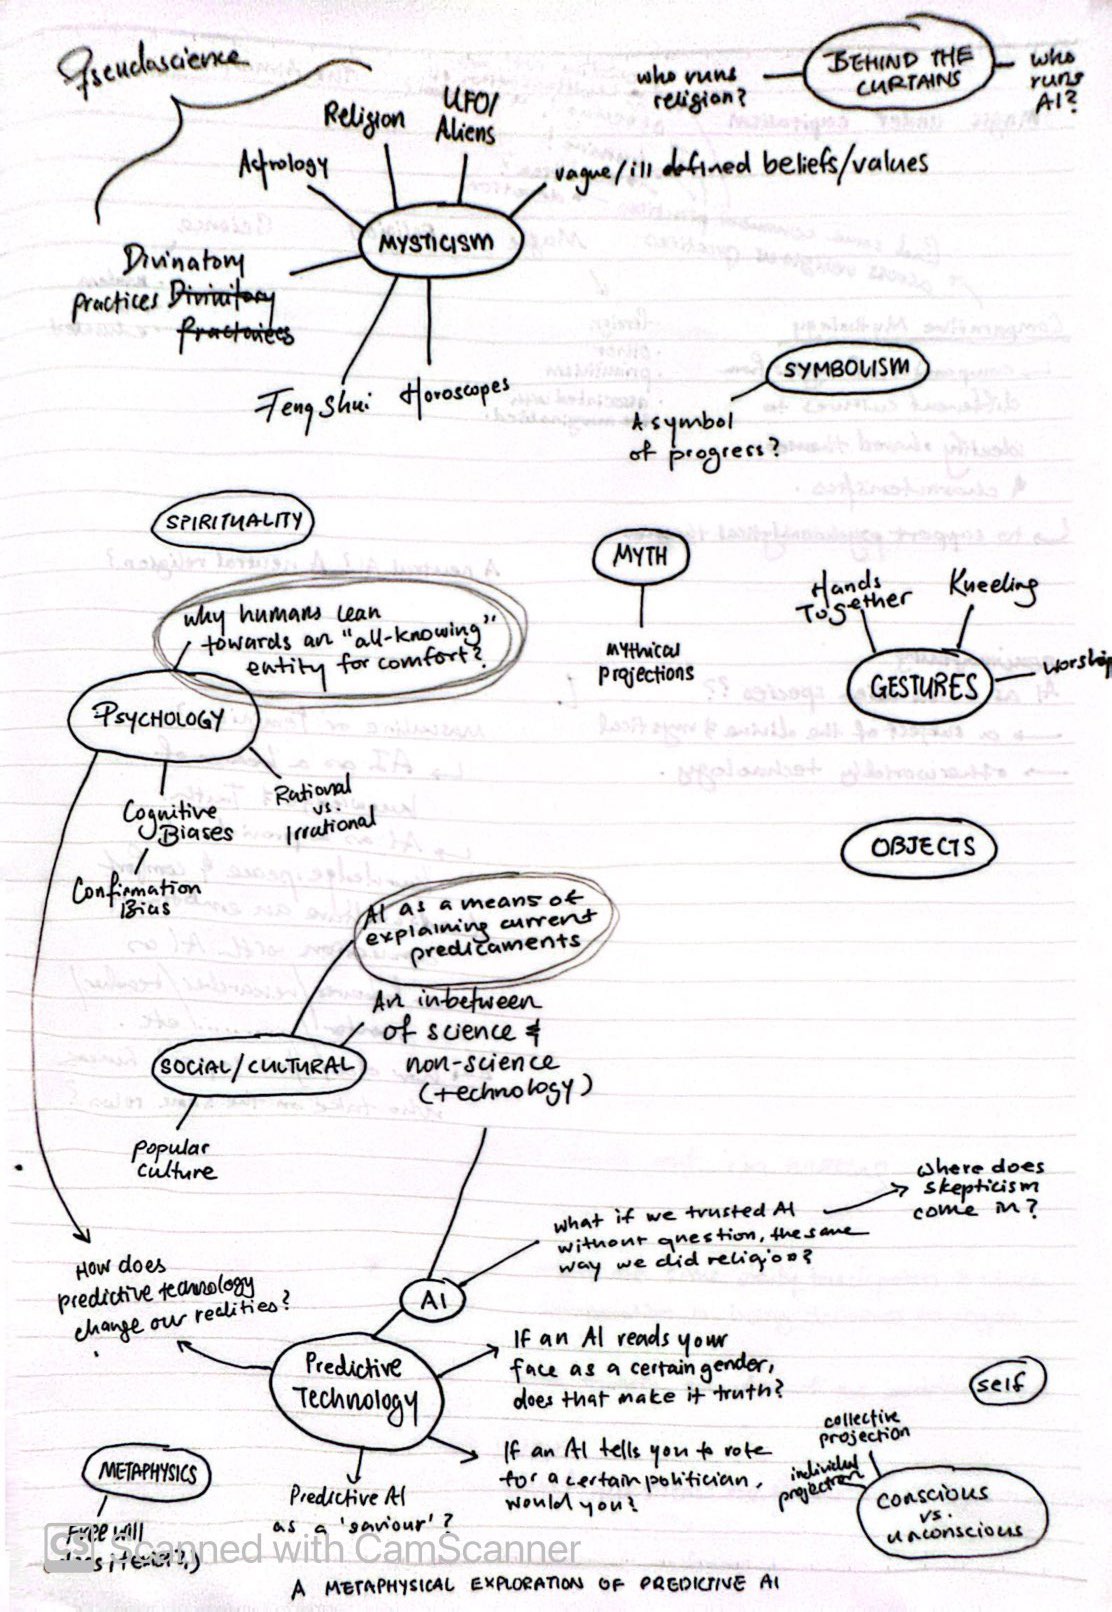 Pseudascience
BEHIND THE
CURTAINS
who runs
religion?
who
runs
AI?
Religion
UFO/
Aliens
Astrology
vague/ill defined beliefs/values
MYSTICISM
Divinatory
practices Divinitory
Practices
Feng Shui
Horoscopes
SYMBOLISM
A symbol
of progress?
SPIRITUALITY
MYTH
mythical
projections
Hands
Together
Kneeling
GESTURES
worship
why humans lean
towards an "all-knowing"
entity for comfort?
PSYCHOLOGY
Cognitive
Biases
Rational
vs.
Irrational
Confirmation
Bias
OBJECTS
AI as a means of
explaining current
predicaments
An inbetween
of science &
non-science
(technology)
SOCIAL/CULTURAL
popular
culture
where does
skepticism
come in?
what if we trusted AI
without question, the same
way we did religion?
How does
predictive technology
change our realities?
AI
Predictive
Technology
If an AI reads your
face as a certain gender,
does that make it truth?
self
If an AI tells you to vote
for a certain politician,
would you?
collective
projection
individual
projection
conscious
vs.
unconscious
METAPHYSICS
Free will
Predictive AI
as a 'saviour'?
CS Scanned with CamScanner
A METAPHYSICAL EXPLORATION OF PREDICTIVE AI